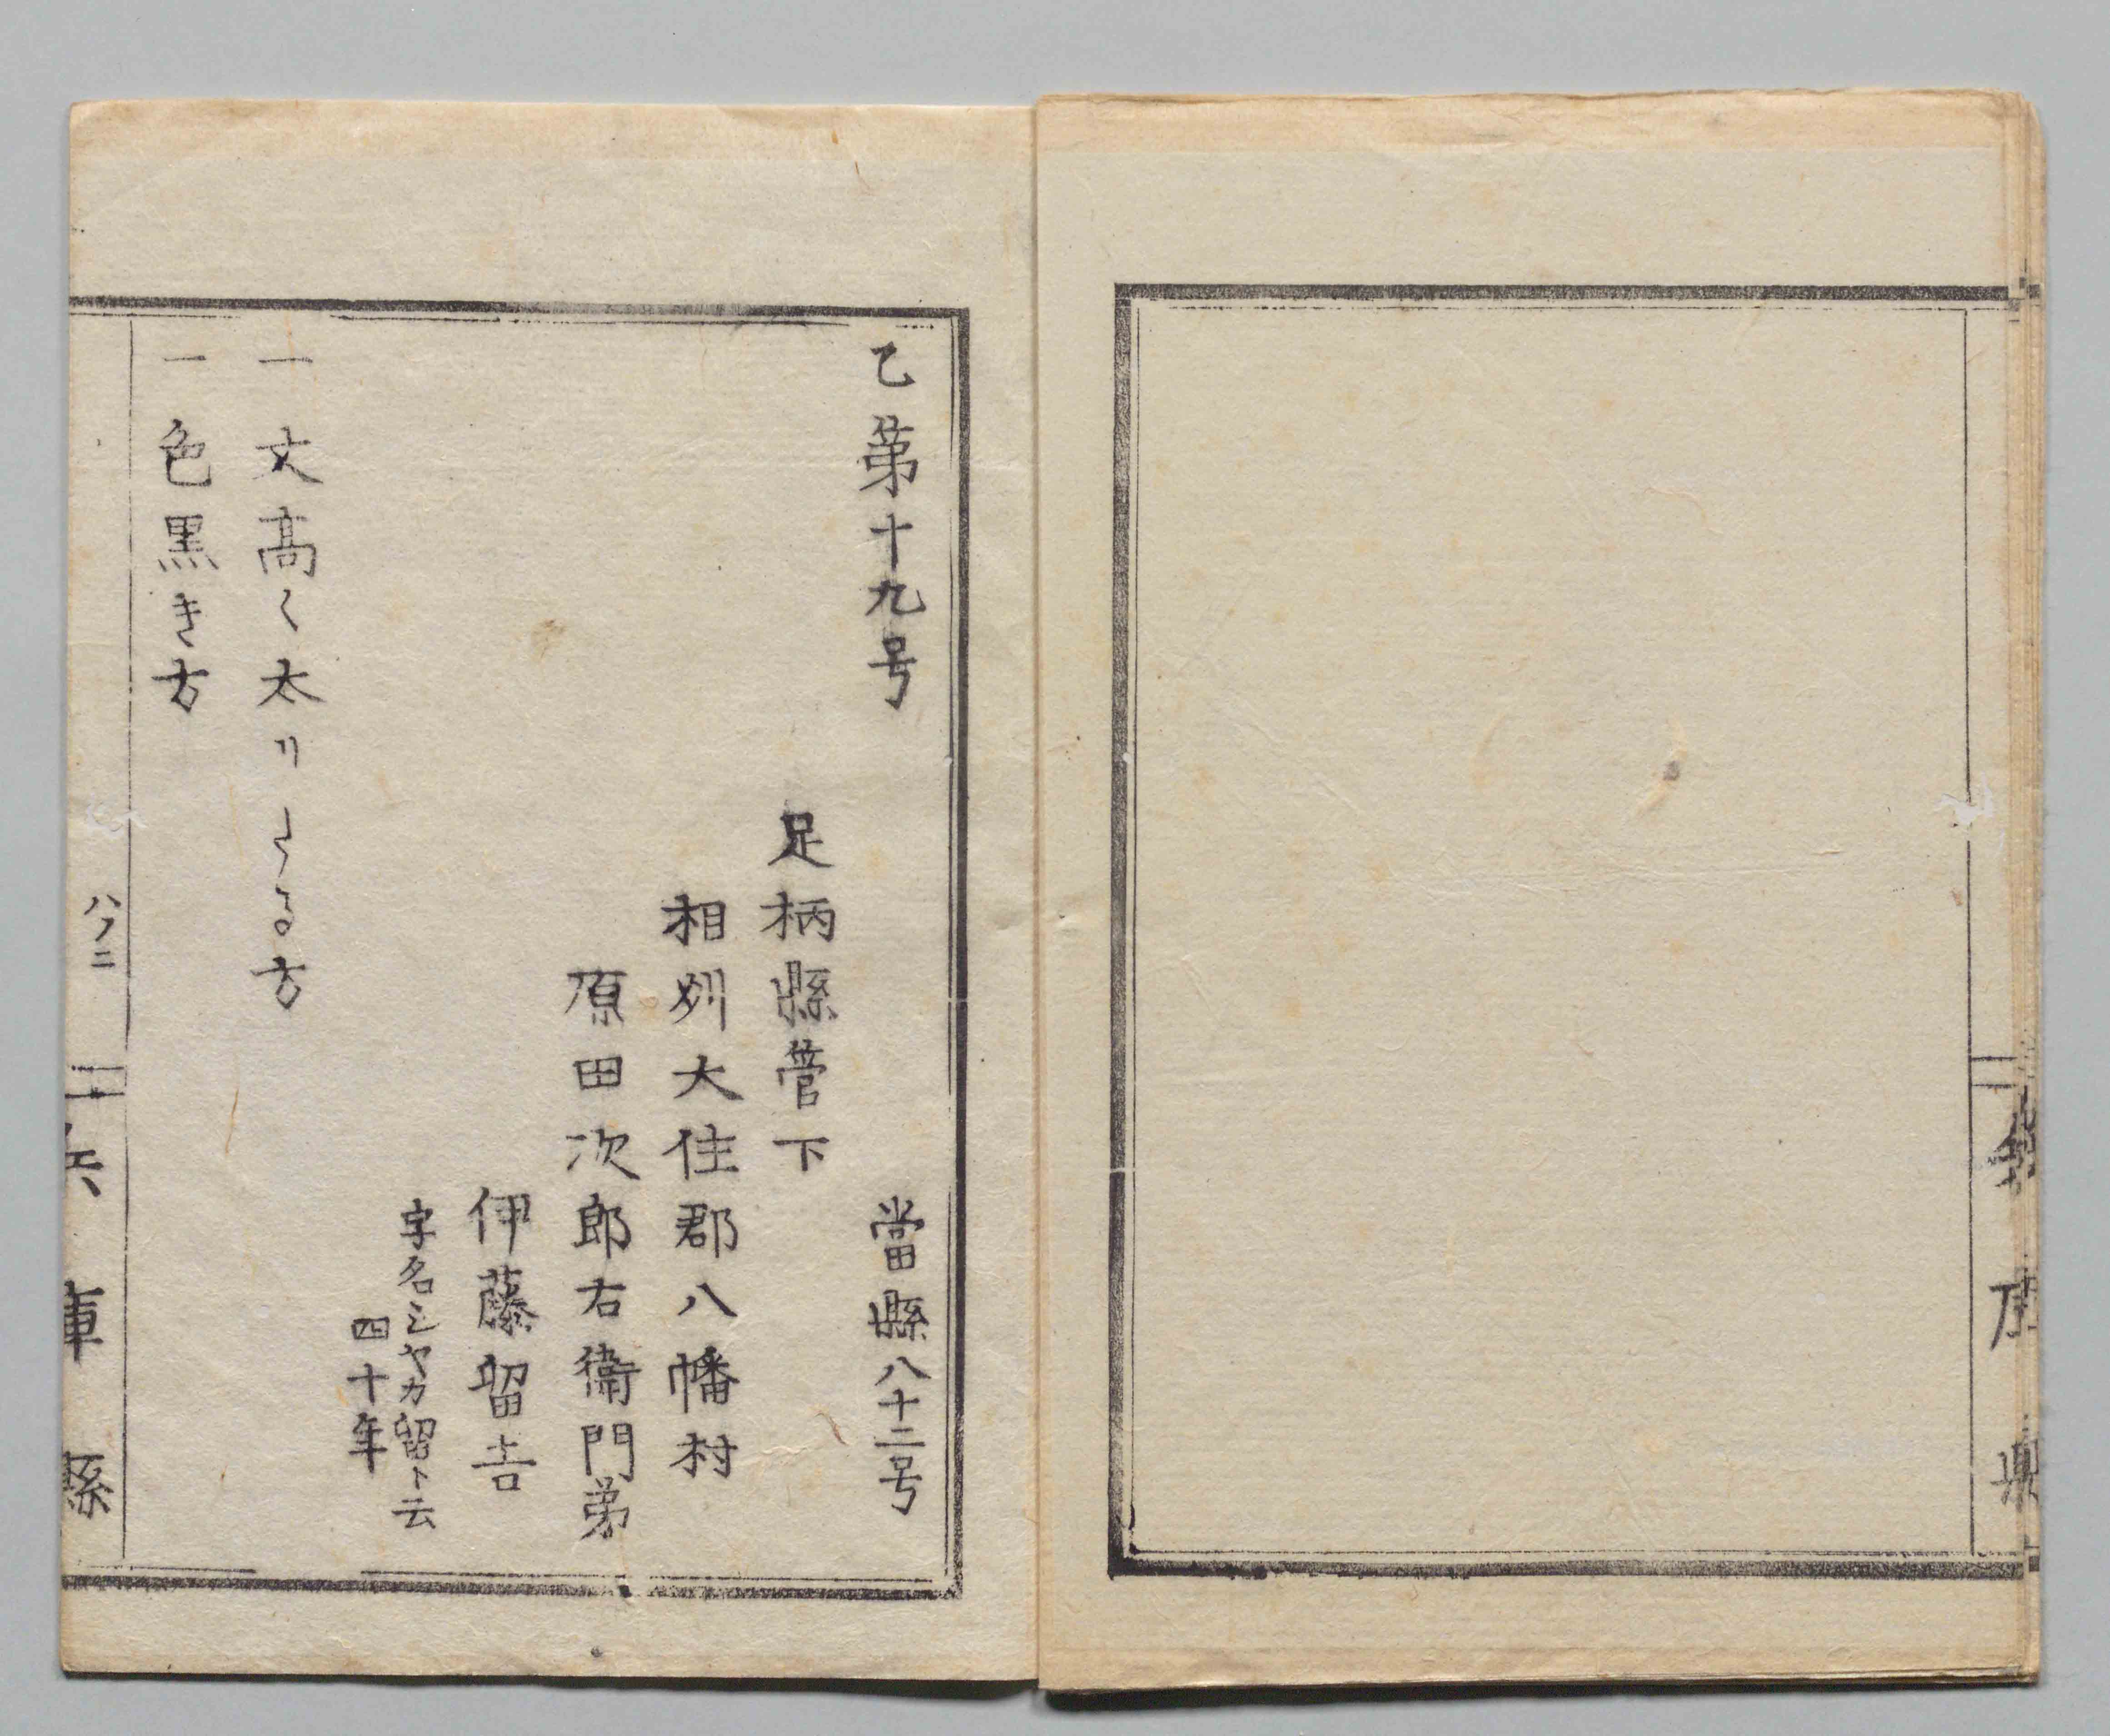 乙第十九号
當縣八十二号
足柄縣管下
相州大住郡八幡村
原田次郎右衛門弟
伊藤留吉
字名シヤカ留ト云
四十年
一 丈高く太りたる方
一 色黒き方
八ノ二
兵庫縣